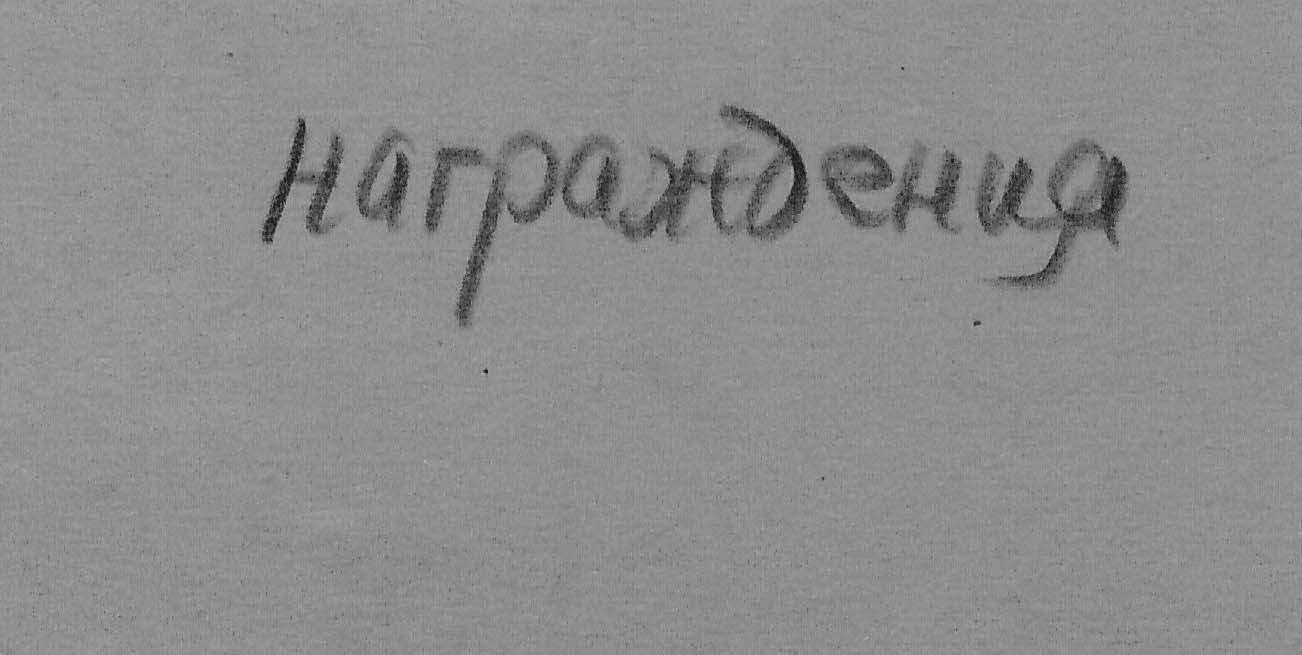 награждения